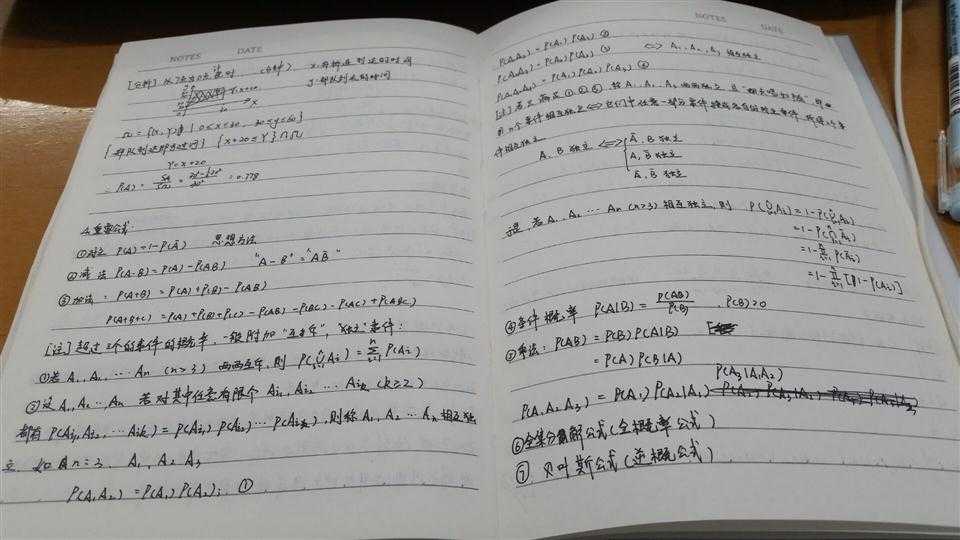 NOTES DATE
[分析] 从7点为0点 计时 (分钟) x:
y: 部队到达的时间
Ω={(x,y)| 0≤x≤30, 30≤y≤60}
{x+20≤Y}∩Ω
Y=x+20
P(A) = = = 0.778
4.重要公式
①对立 P(A)=1-P(Ā) 思想方法
②减法 P(A-B)=P(A)-P(AB) "A-B"="AB̄"
③加法: P(A+B)=P(A)+P(B)-P(AB)
P(A+B+C)=P(A)+P(B)+P(C)-P(AB)-P(BC)-P(AC)+P(ABC)
[注]超过三个的事件的概率,一般附加"互斥","独立"事件:
①若 A₁,A₂,⋯An (n>3) 两两互斥,则 P(⋃ⁿᵢ₌₁Aᵢ)=∑ⁿᵢ₌₁P(Aᵢ)
②设 A₁,A₂⋯An 若对其中任意有限个 Ai₁,Ai₂⋯Aik (k≥2)
都有 P(Ai₁,Ai₂,⋯Aik)=P(Ai₁)P(Ai₂)⋯P(Aik),则称 A₁,A₂⋯An 相互独
立. 如 n=3. A₁,A₂,A₃
P(A₁A₂)=P(A₁)P(A₂); ①
NOTES DATE
P(A₁A₃)=P(A₁)P(A₃) ②
P(A₂A₃)=P(A₂)P(A₃) ③ ⟺ A₁,A₂,A₃ 相互独立
P(A₁A₂A₃)=P(A₁)P(A₂)P(A₃) ④
[注]若只满足①②③,称A₁,A₂,A₃两两独立
n个事件相互独立⟺它们中任意一部分事件换成各自的对立事件,所得n个事
件相互独立
A,B 独立 ⟺ { Ā,B 独立
A,B̄ 独立
Ā,B̄ 独立
若 A₁,A₂,⋯An (n>3) 相互独立,则 P(⋃ⁿᵢ₌₁Aᵢ)=1-P(
=1-P(⋂ⁿᵢ₌₁Āᵢ)
=1-∏ⁿᵢ₌₁P(Āᵢ)
=1-∏ⁿᵢ₌₁[1-P(Aᵢ)]
④条件概率 P(A|B)=P(AB)/P(B) P(B)>0
⑤乘法: P(AB)=P(B)P(A|B)
=P(A)P(B|A)
P(A₃|A₁A₂)
P(A₁A₂A₃)=P(A₁)P(A₂|A₁)
⑥全集分解公式(全概率公式)
⑦贝叶斯公式(逆概公式)